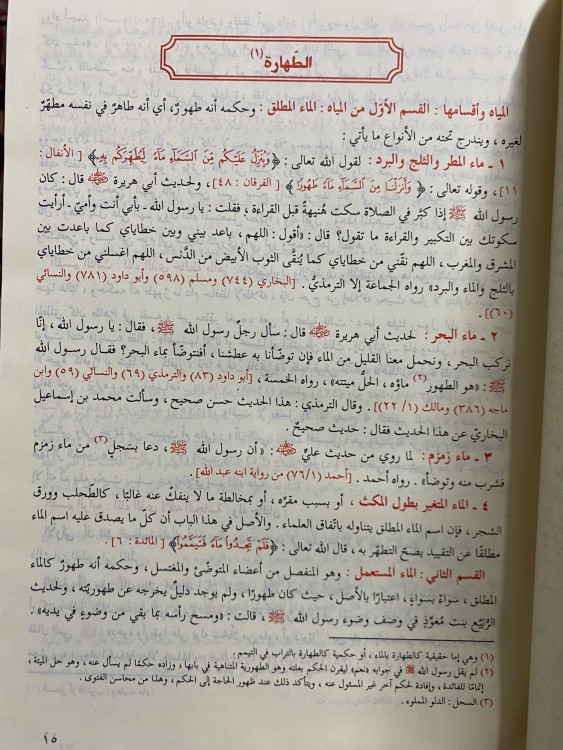 الطّهارة (١)
المياه وأقسامها : القسم الأوّل من المياه : الماء المطلق : وحكمه أنه طهورٌ، أي أنه طاهرٌ في نفسه مطهّرٌ
لغيره ، ويندرج تحته من الأنواع ما يأتي :
١ ـ ماء المطر والثلج والبرد : لقول الله تعالى : ﴿وَيُنَزِّلُ عَلَيْكُم مِّنَ ٱلسَّمَآءِ مَآءً لِّيُطَهِّرَكُم بِهِۦ﴾ [ الأنفال :
١١] ، وقوله تعالى : ﴿ وَأَنزَلْنَا مِنَ ٱلسَّمَآءِ مَآءً طَهُورًا ﴾ [الفرقان : ٤٨] ، ولحديث أبي هريرة ﷺ قال : كان
رسول الله ﷺ إذا كبَّر في الصلاة سكت هُنيهةً قبل القراءة ، فقلت : يا رسول الله ـ بأبي أنت وأميّ ـ أرأيت
سكوتك بين التكبير والقراءة ما تقول؟ قال : «أقول : اللهم ، باعد بيني وبين خطاياي كما باعدت بين
المشرق والمغرب ، اللهم نقّني من خطاياي كما يُنقَّى الثوب الأبيض من الدَّنس ، اللهم اغسلني من خطاياي
بالثلج والماء والبرد» رواه الجماعة إلا الترمذيُّ . [البخاري (٧٤٤) ومسلم (٥٩٨) وأبو داود (٧٨١) والنسائي
(٦٠)] .
٢ ـ ماء البحر : لحديث أبي هريرة ﷺ قال : سأل رجلٌ رسول الله ﷺ ، فقال : يا رسول الله ، إنّا
نركب البحر ، ونحمل معنا القليل من الماء فإن توضّأنا به عطشنا ، أفنتوضّأ بماء البحر؟ فقال رسول الله
ﷺ : «هو الطهور (٢) ماؤه ، الحلُّ ميتته» ، رواه الخمسة ، [أبو داود (٨٣) والترمذي (٦٩) والنسائي (٥٩) وابن
ماجه (٣٨٦) ومالك (١/ ٢٢)] . وقال الترمذي : هذا الحديث حسن صحيح ، وسألت محمد بن إسماعيل
البخاريّ عن هذا الحديث فقال : حديث صحيحٌ .
٣ ـ ماء زمزم : لما روي من حديث عليٍّ ﷺ : «أن رسول الله ﷺ ، دعا بسَجلٍ (٣) من ماء زمزم
فشرب منه وتوضأ» . رواه أحمد . [أحمد (٧٦/١) من رواية ابنه عبد الله] .
٤ ـ الماء المتغير بطول المكث ، أو بسبب مقرّه ، أو بمخالطة ما لا ينفكّ عنه غالبًا ، كالطّحلب وورق
الشجر ، فإن اسم الماء المطلق يتناوله باتّفاق العلماء . والأصل في هذا الباب أن كلّ ما يصدق عليه اسم الماء
مطلقًا عن التقييد يصحّ التطهّر به ، قال الله تعالى : ﴿فَلَمْ تَجِدُوا۟ مَآءً فَتَيَمَّمُوا۟﴾ [المائدة : ٦] .
القسم الثاني : الماء المستعمل : وهو المنفصل من أعضاء المتوضّئ والمغتسل ، وحكمه أنه طهورٌ كالماء
المطلق ، سواءً بسواءٍ ، اعتبارًا بالأصل ، حيث كان طهورًا ، ولم يوجد دليلٌ يخرجه عن طهوريّته ، ولحديث
الرُّبَيِّع بنت مُعوِّذٍ في وصف وضوء رسول الله ﷺ ، قالت : «ومسح رأسه بما بقي من وضوءٍ في يديه» .
(١) وهي إما حقيقية كالطهارة بالماء ، أو حكمية كالطهارة بالتراب في التيمم .
(٢) لم يقل رسول الله ﷺ في جوابه «نعم» ليقرن الحكم بعلته وهو الطهورية المتناهية في بابها ، وزاده حكمًا لم يسأل عنه ، وهو حل الميتة ،
إتمامًا للفائدة ، وإفادة لحكم آخر غير المسئول عنه ، ويتأكد ذلك عند ظهور الحاجة إلى الحكم ، وهذا من محاسن الفتوى .
(٣) السجل : الدلو المملوء .
١٥